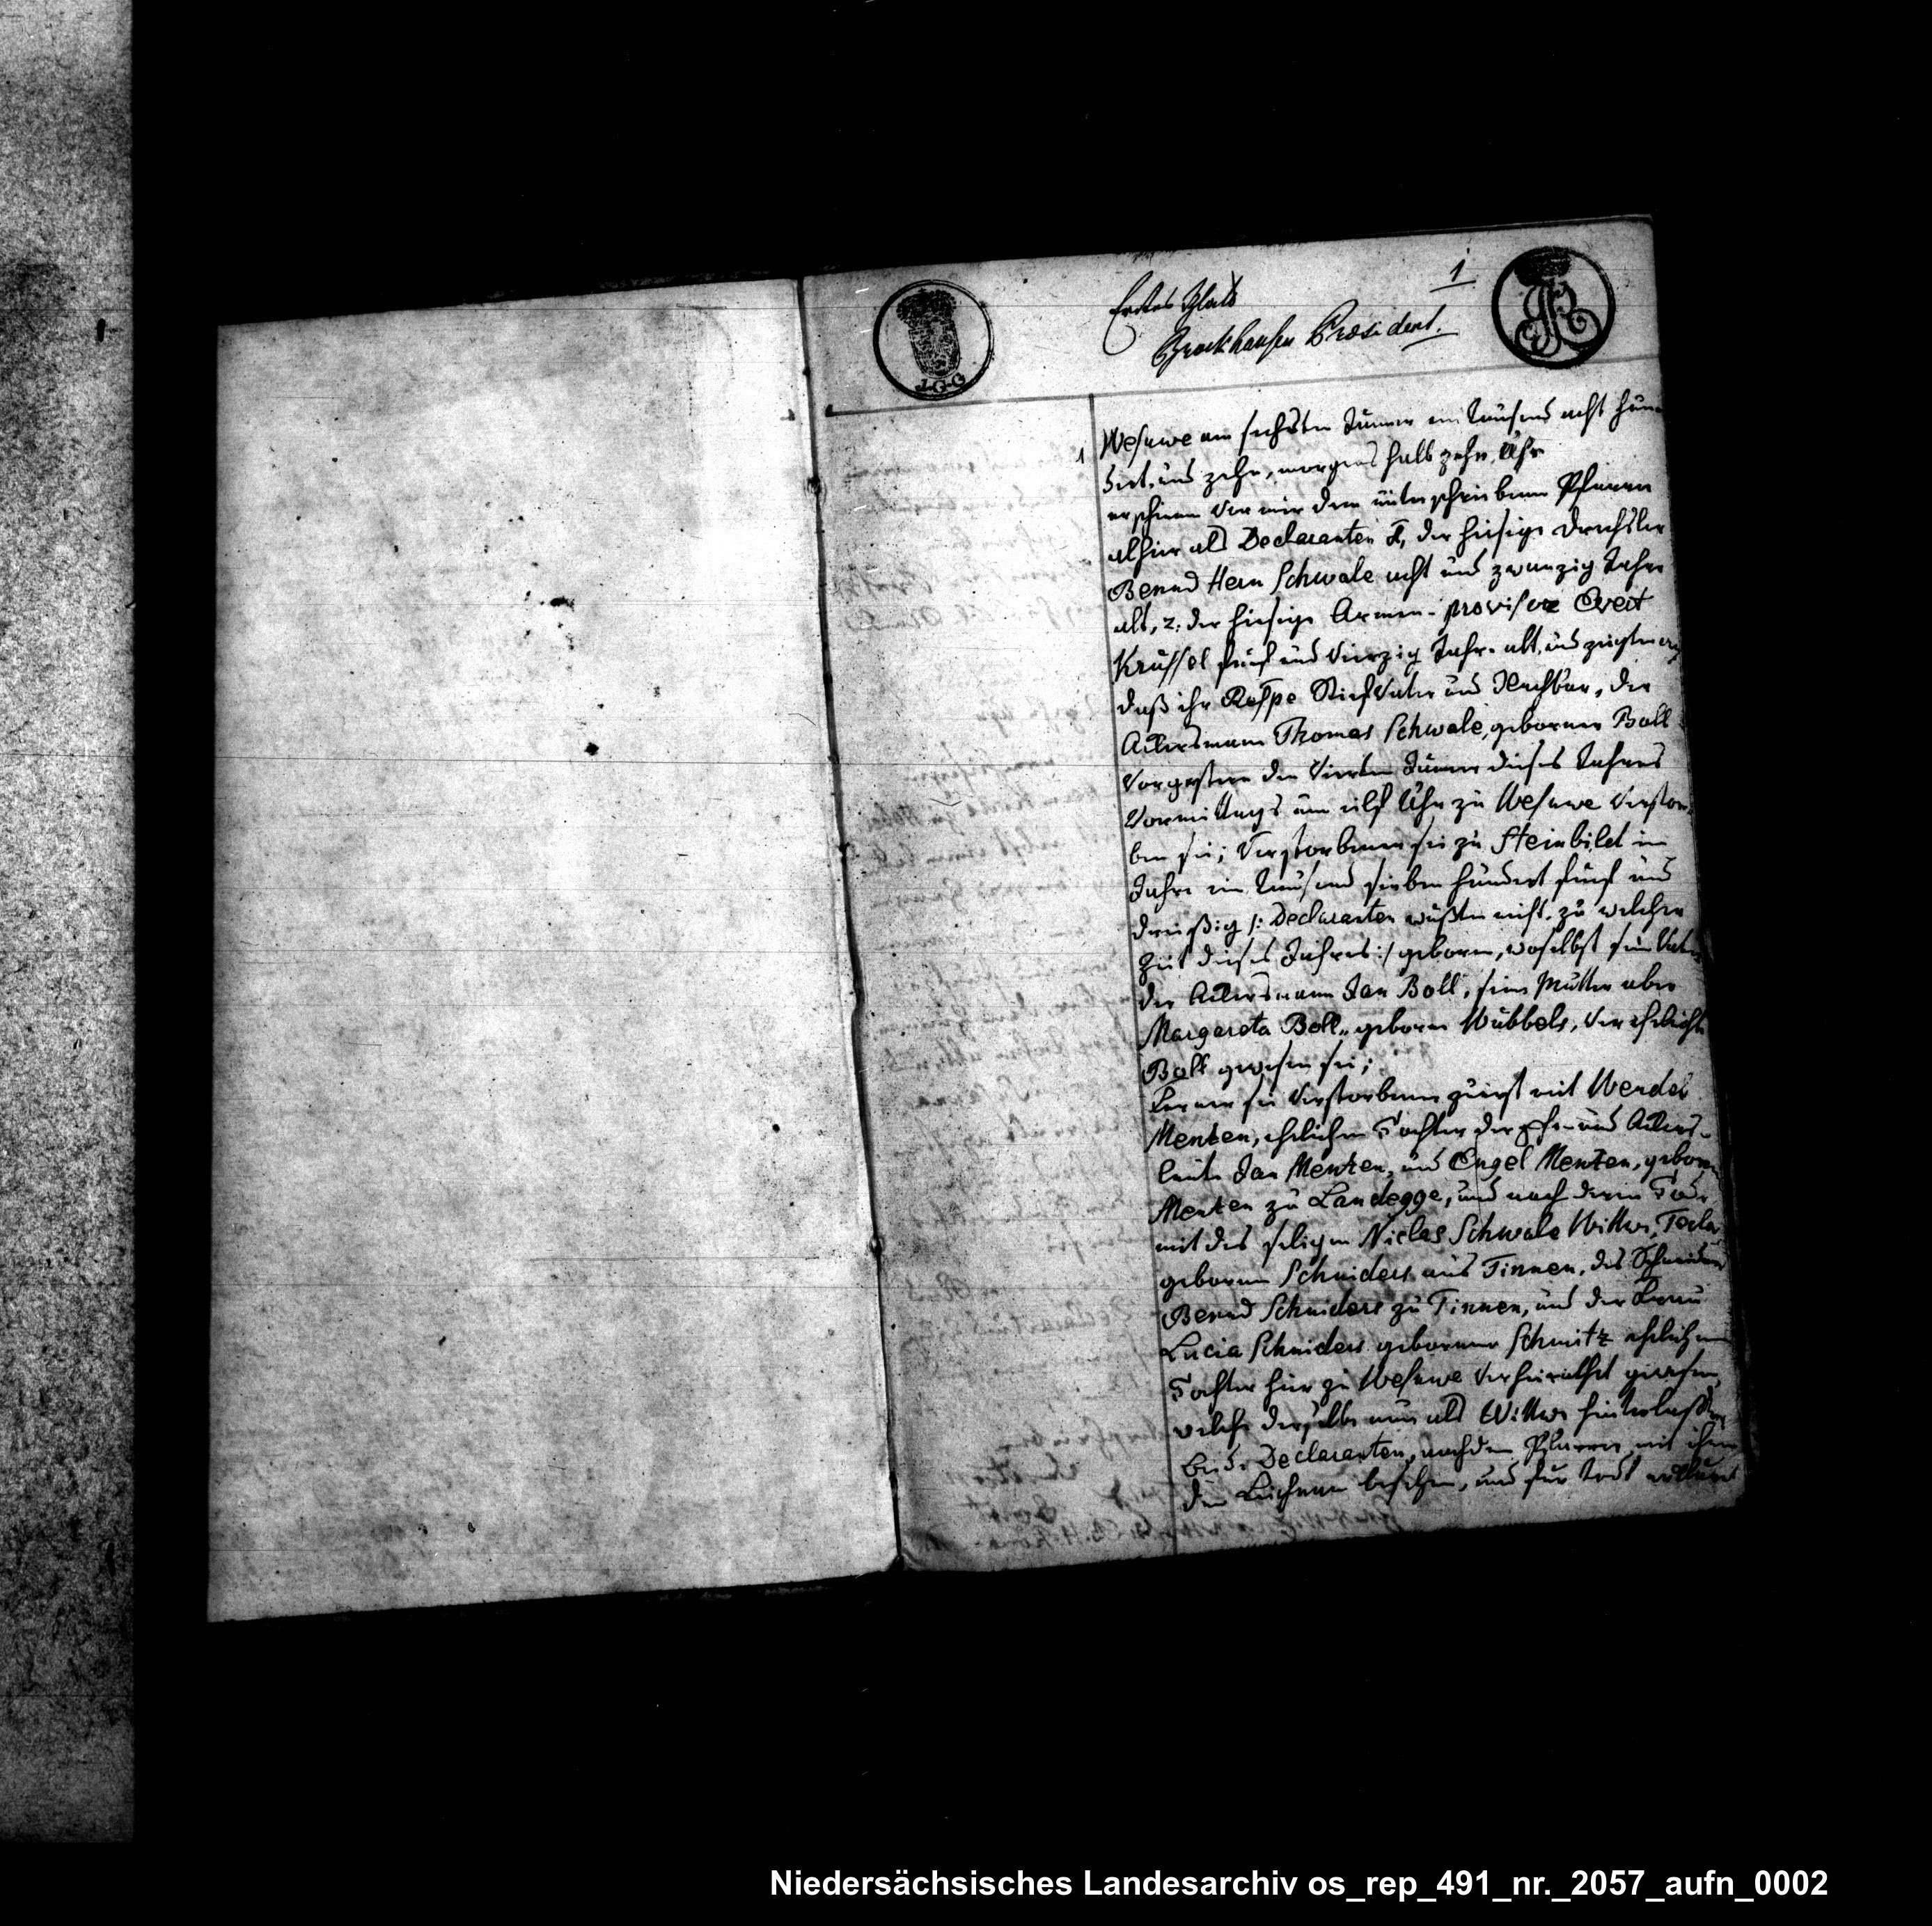 1
Erstes Blatt
Brockhausen Præsident.
J.G.G
1
Wesuwe am sechsten Jänner ein tausend acht hun-
dert und zehn, morgens halb zehn Uhr
erschienen vor mir dem unterschriebenen Pfarrer
alhier als Declaranten 1, der hiesige Drechsler
Bernd Herm Schwale acht und zwanzig Jahre
alt, 2. der hiesige Armen-provisor Evert
Krüssel fünf und vierzig Jahre alt, und zeigten an
daß ihr Respe Stiefvater und Nachbar, der
Ackersmann Thomas Schwale, geborner Boll
vorgestern den vierten Jänner dieses Jahres
Vormittags um eilf Uhr zu Wesuwe verstor-
ben sei; Verstorbener sei zu Steinbild im
Jahre ein tausend sieben hundert fünf und
dreißig /: Declaranten wüßten nicht, zu welcher
Zeit dieses Jahres :/ geboren, woselbst sein Vater
der Ackersmann Jan Boll, seine Mutter aber
Margareta Boll, geborne Wübbels, verehelichte
Boll gewesen sei;
Ferner sei Verstorbener zuerst mit Wendel
Menten, ehelichen Tochter der Ehe- und Ackers-
leute Jan Menten, und Engel Menten, geborne
Menten zu Landegge, und nach deren Tode
mit des seligen Niclas Schwale Wittwe, Tecla
geborne Schniders aus Tinnen, des Schneiders
Bernd Schniders zu Tinnen, und der Frau
Lucia Schniders geborner Schmitz ehelichen
Tochter hier zu Wesuwe verheirathet gewesen,
welche derselbe nun als Wittwe hinterlaßen
Beide Declaranten, nachdem Pfarrer mit ihnen
den Leichnam besehen, und für todt erkannt
Niedersächsisches Landesarchiv os_rep_491_nr._2057_aufn_0002